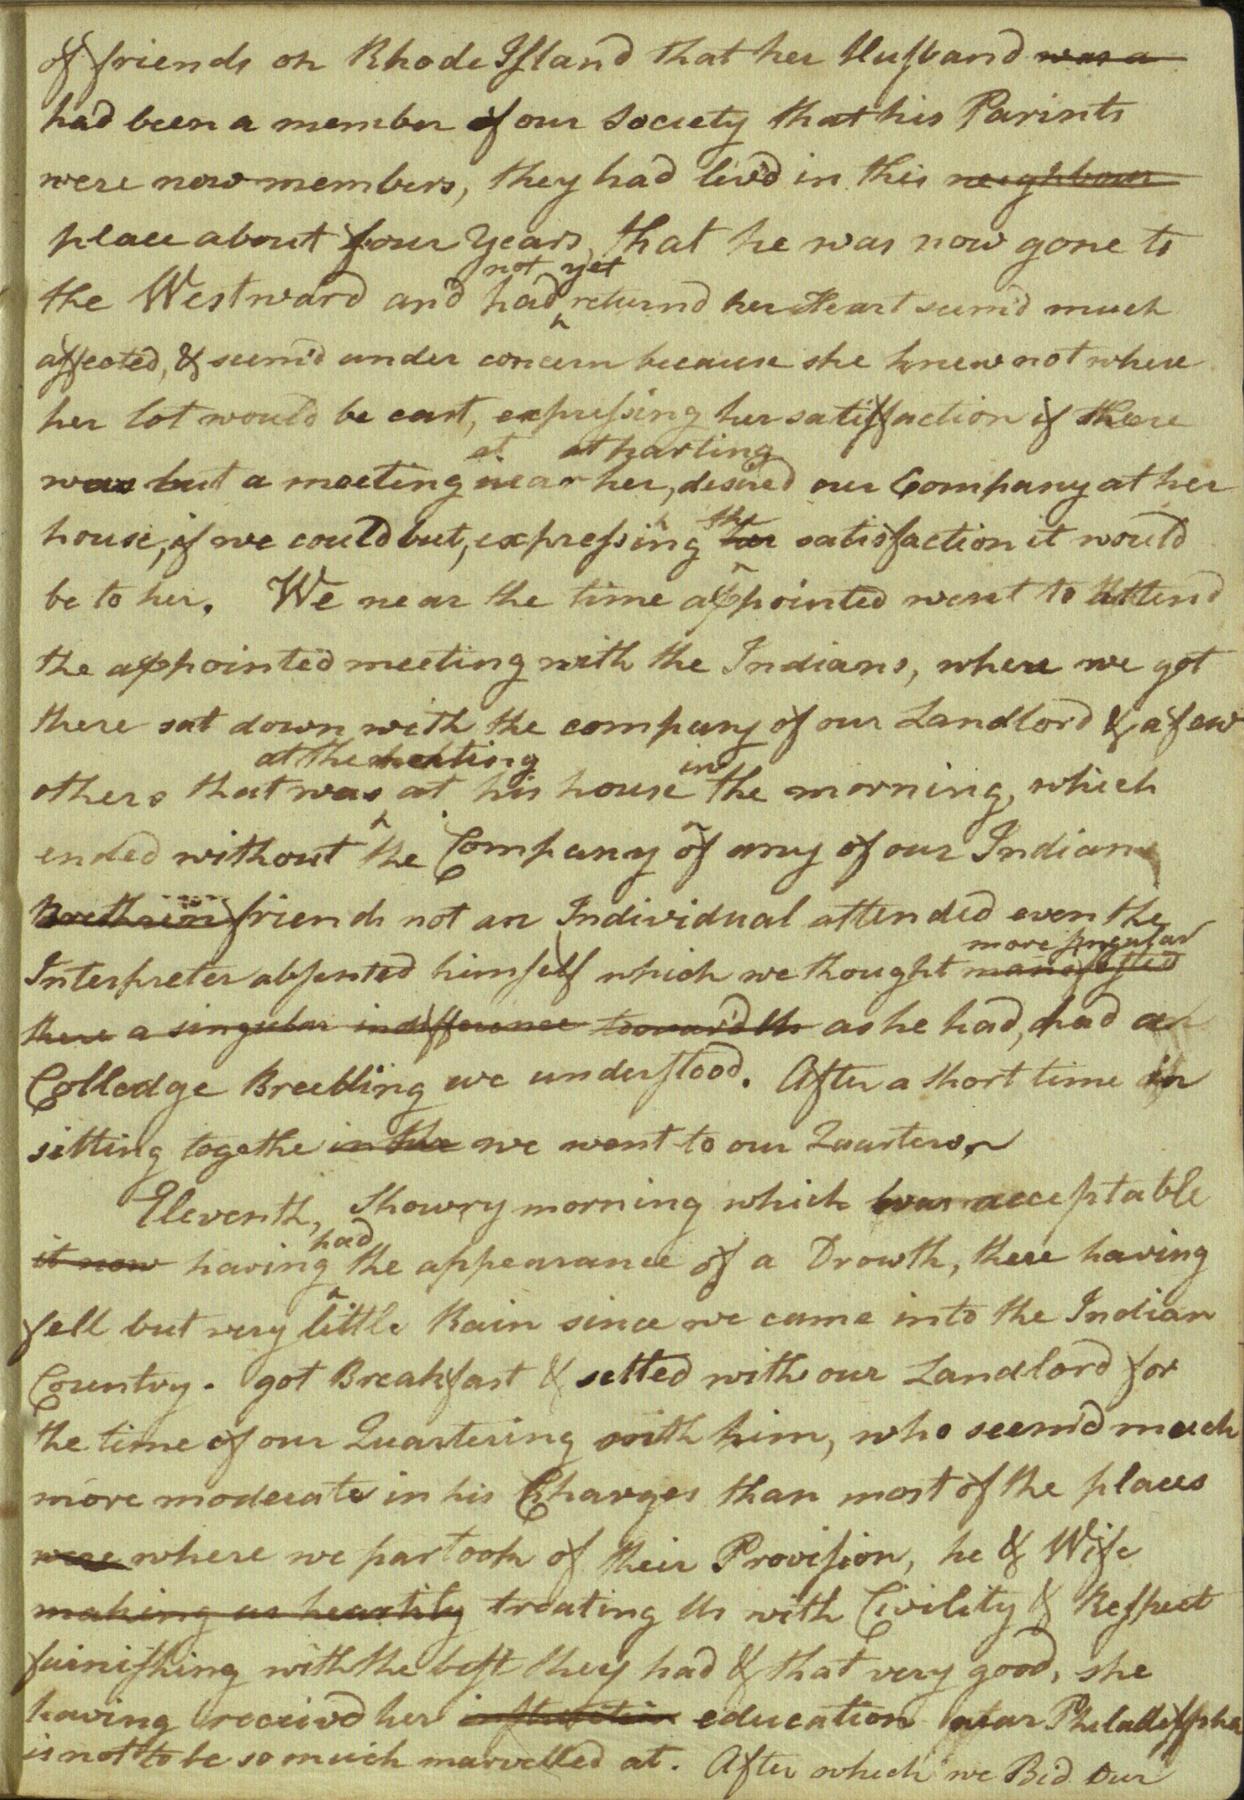 of friends on Rhode Island that her Husband was a
had been a member of our Society that his Parints
were now members, they had liv'd in this neighbour
place about four Years, that he was now gone to
not yet
the Westward and had returnd her Heart seem'd much
affected, & seem'd under concern because she knew not where
her lot would be cast, expressing her satisfaction if there
at at parting
was but a meeting near her, desired our Company at her
house, if we could but, expressing the her satisfaction it would
be to her. We near the time appointed went to attend
the appointed meeting with the Indians, where we got
there sat down with the company of our Landlord & a few
at the meeting in
others that was at his house the morning, which
ended without the Company of any of our Indian
Brethren friends not an Individual attended even the
more singular
Interpreter absented himself which we thought manifested
there a singular indifference toward Us as he had, had a
Colledge Breedling we understood. After a short time in
sitting togethe in the we went to our Quarters,
Eleventh, Showry morning which was acceptable
had
it now having the appearance of a Drowth, there having
fell but very little Rain since we came into the Indian
Country. got Breakfast & setled with our Landlord for
the time of our Quartering with him, who seem'd much
more moderate in his Charges than most of the places
were where we partook of their Provision, he & Wife
making us heartily treating Us with Civility & Respect
furnishing with the best they had & that very good, she
having receivd her education near Philadelpha
is not to be so much marvelled at. After which we Bid our